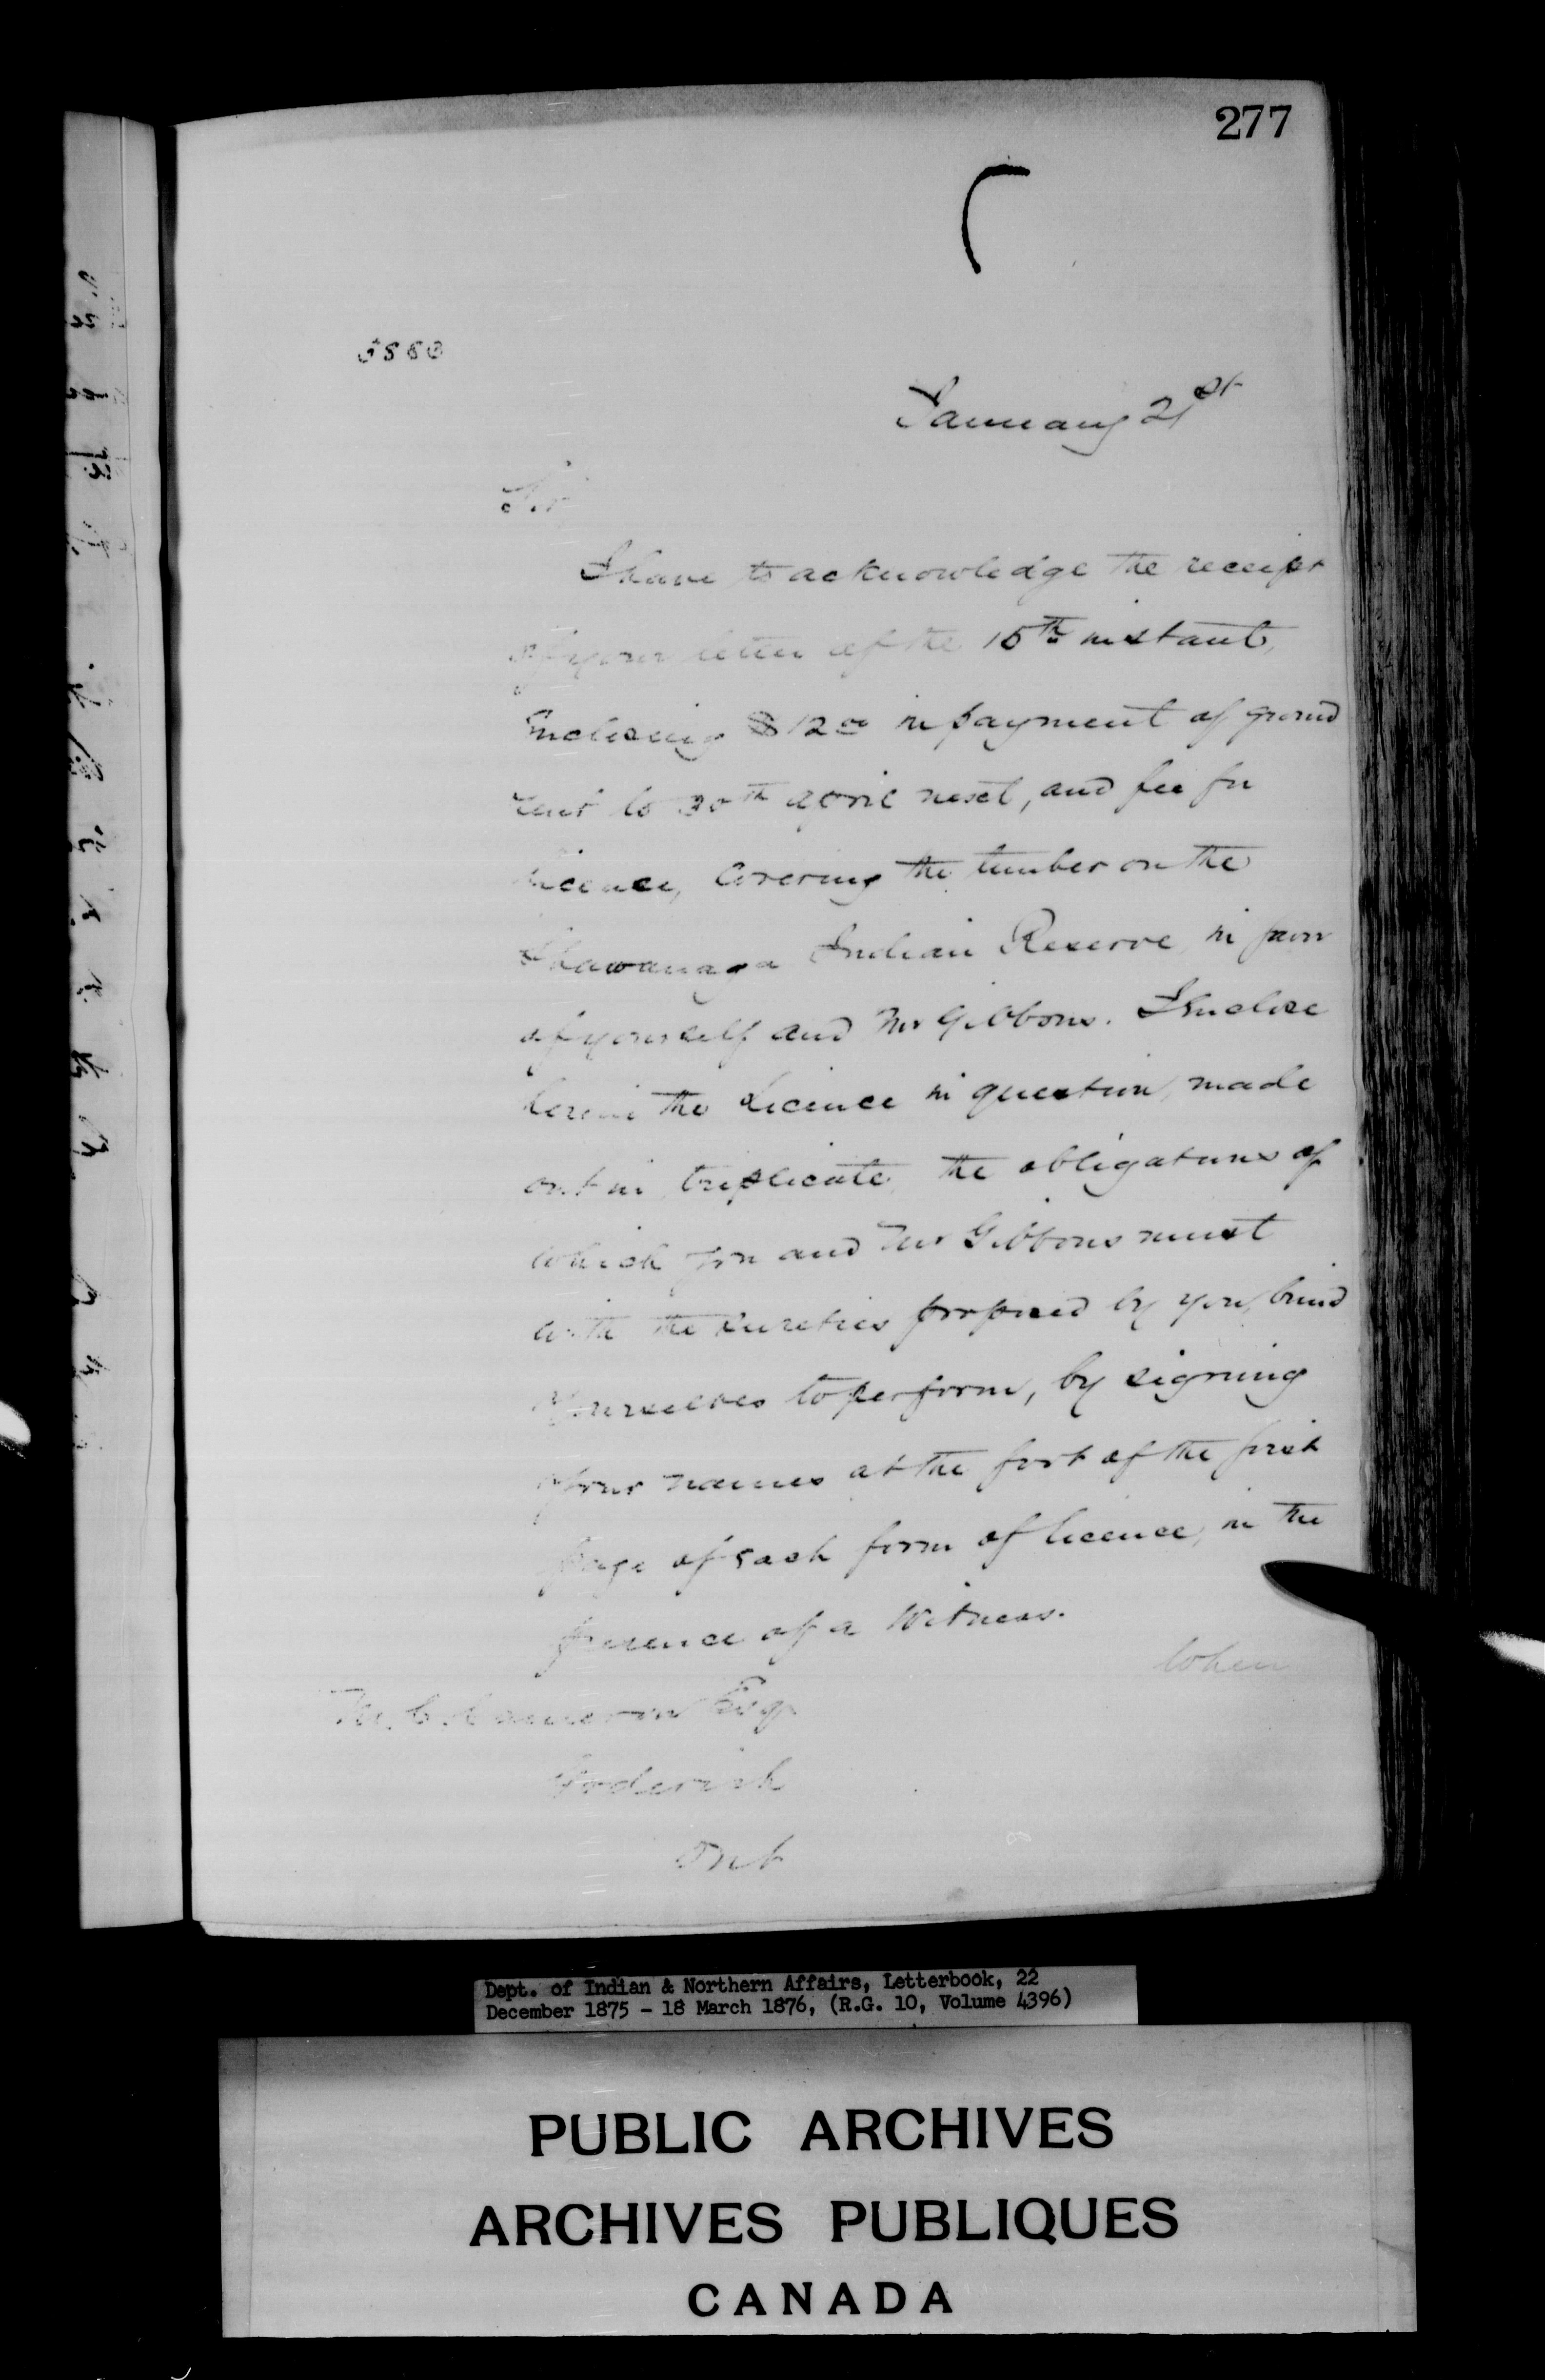 277
January 21st
Sir
I have to acknowledge the receipt
of your letter of the 15th instant,
Enclosing $12 00 in payment of ground
rent to 30th April next, and fee for
licence, Covering the timber on the
Shawanaga Indian Reserve, in favor
of yourself and Mr Gibbons. I Enclose
herein the Licence in question, made
out in triplicate, the obligations of
which you and Mr Gibbons must
with the sureties proposed by you, bind
yourselves to perform, by signing
your names at the foot of the first
page of Each form of licence, in the
presence of a Witness.
When
M. C. Cameron Esq
Goderich
Ont
Dept. of Indian & Northern Affairs, Letterbook, 22
December 1875 - 18 March 1876, (R.G. 10, Volume 4396)
PUBLIC ARCHIVES
ARCHIVES PUBLIQUES
CANADA